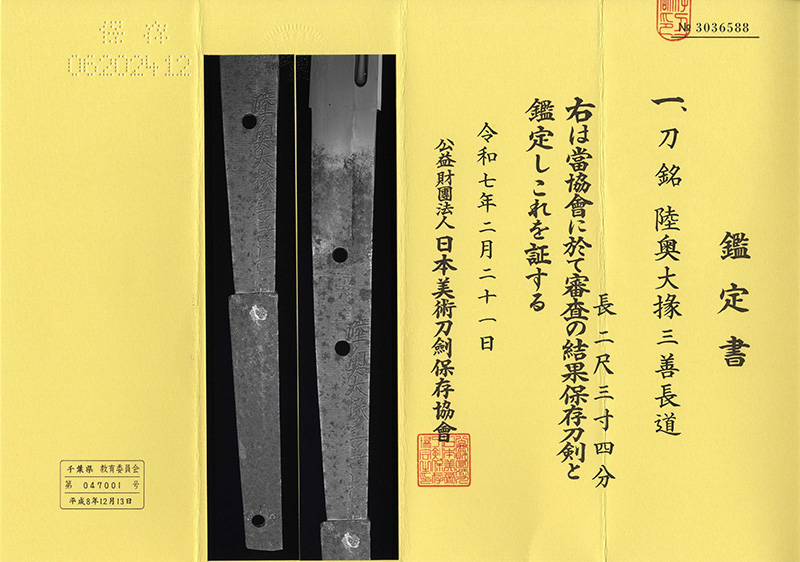 № 3036588
鑑定書
一、刀 銘 陸奥大掾三善長道
長 二尺三寸四分
右は當協會に於て審査の結果保存刀剣と
鑑定しこれを証する
令和七年二月二十一日
公益財團法人 日本美術刀劍保存協會
保存
06202412
陸奥大掾三善長
陸奥大掾三
千葉県 教育委員会
第 047001 号
平成8年12月13日